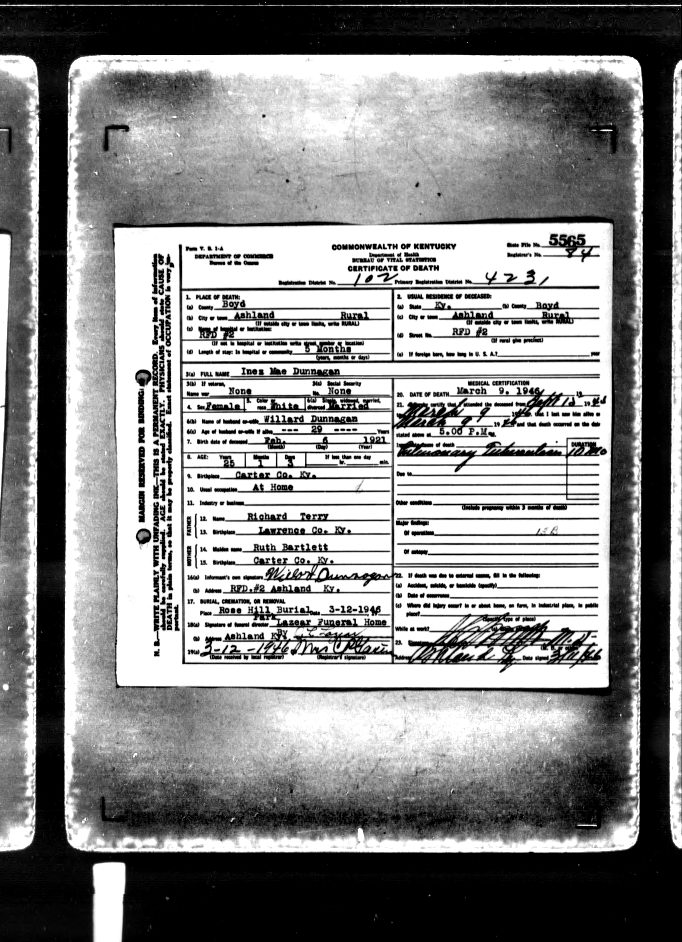 Form V. S. 1-A
DEPARTMENT OF COMMERCE
Bureau of the Census
COMMONWEALTH OF KENTUCKY
Department of Health
BUREAU OF VITAL STATISTICS
CERTIFICATE OF DEATH
State File No. 5565
Registrar's No. 84
Registration District No. 102 Primary Registration District No. 4231
MARGIN RESERVED FOR BINDING
N. B.—WRITE PLAINLY WITH UNFADING INK—THIS IS A PERMANENT RECORD. Every item of information
should be carefully supplied. AGE should be stated EXACTLY. PHYSICIANS should state CAUSE OF
DEATH in plain terms, so that it may be properly classified. Exact statement of OCCUPATION is very im-
portant.
1. PLACE OF DEATH:
(a) County Boyd
(b) City or town Ashland Rural
(If outside city or town limits, write RURAL)
(c) Name of hospital or institution:
RFD #2
(If not in hospital or institution write street number or location)
(d) Length of stay: In hospital or community 5 Months
(years, months or days)
2. USUAL RESIDENCE OF DECEASED:
(a) State Ky. (b) County Boyd
(c) City or town Ashland Rural
(If outside city or town limits, write RURAL)
(d) Street No. RFD #2
(If rural give precinct)
(e) If foreign born, how long in U. S. A.? year
3(a) FULL NAME Ines Mae Dunnagan
3(b) If veteran,
Name war None
3(c) Social Security
No. None
4. Sex Female 5. Color or race White 6(a) Single, widowed, married, divorced Married
6(b) Name of husband or wife Willard Dunnagan
6(c) Age of husband or wife if alive --- 29 ---- Years
7. Birth date of deceased Feb. 6 1921
(Month) (Day) (Year)
8. AGE: Years Months Days If less than one day
25 1 3 hr. min.
9. Birthplace Carter Co. Ky.
10. Usual occupation At Home
11. Industry or business
FATHER
12. Name Richard Terry
13. Birthplace Lawrence Co. Ky.
MOTHER
14. Maiden name Ruth Bartlett
15. Birthplace Carter Co. Ky.
16(a) Informant's own signature Dunnagan
(b) Address RFD.#2 Ashland Ky.
17. BURIAL, CREMATION, OR REMOVAL
Place Rose Hill Burial Park Date 3-12-1946
18(a) Signature of funeral director Lazear Funeral Home
(b) Address Ashland Ky
19(a) 3-12-1946 Mrs
(Date received by local registrar) (Registrar's signature)
MEDICAL CERTIFICATION
20. DATE OF DEATH March 9, 1946
21. I hereby certify that I attended the deceased from Sept 12 1945
March 9 1946 that I last saw him alive on
March 9 1946 and that death occurred on the date
stated above at 5.00 P.M.
Immediate cause of death DURATION
Pulmonary Tuberculosis 10 Mo
Due to
Other conditions
(Include pregnancy within 3 months of death)
Major findings:
Of operations 13B
Of autopsy
22. If death was due to external causes, fill in the following:
(a) Accident, suicide, or homicide (specify)
(b) Date of occurrence
(c) Where did injury occur? in or about home, on farm, in industrial place, in public
place?
(Specify type of place)
While at work?
23. M.D.
Address Ashland Ky Date signed 3/11/46